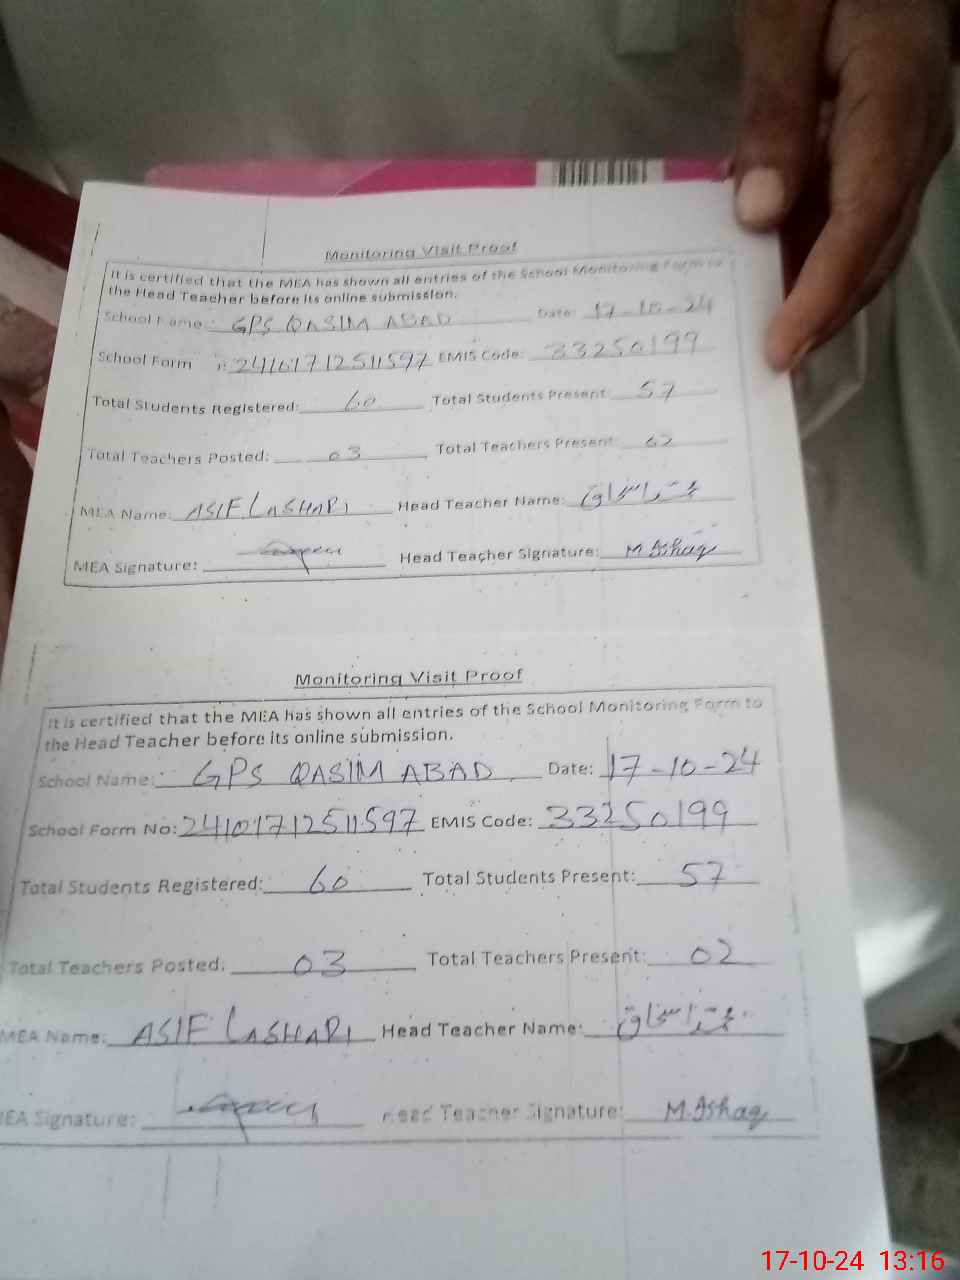 Monitoring Visit Proof
It is certified that the MEA has shown all entries of the School Monitoring Form to
the Head Teacher before its online submission.
School Name: GPS QASIM ABAD Date: 17-10-24
School Form : 24101712511597 EMIS Code: 33250199
Total Students Registered: 60 Total Students Present: 57
Total Teachers Posted: 03 Total Teachers Present: 02
MEA Name: ASIF LASHARI Head Teacher Name: محمد اسحاق
MEA Signature: Head Teacher Signature: M.Ishaq
Monitoring Visit Proof
It is certified that the MEA has shown all entries of the School Monitoring Form to
the Head Teacher before its online submission.
School Name: GPS QASIM ABAD Date: 17-10-24
School Form No: 24101712511597 EMIS Code: 33250199
Total Students Registered: 60 Total Students Present: 57
Total Teachers Posted: 03 Total Teachers Present: 02
MEA Name: ASIF LASHARI Head Teacher Name: محمد اسحاق
MEA Signature: Head Teacher Signature: M.Ishaq
17-10-24 13:16